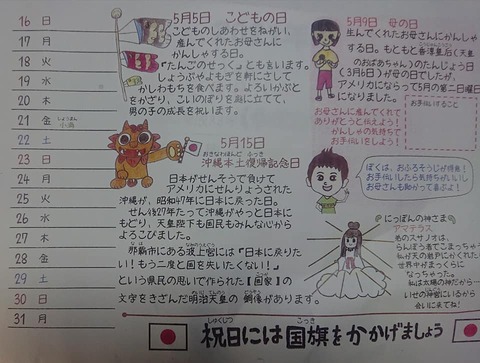 16 日
17 月
18 火
19 水
20 木
21 金 小満
22 土
23 日
24 月
25 火
26 水
27 木
28 金
29 土
30 日
31 月
5月5日 こどもの日
こどものしあわせをねがい、
産んでくれたお母さんに
かんしゃする日。
"たんごのせっく"ともをいいます。
しょうぶやよもぎを軒にさして
かしわもちを食べます。よろいかぶと
をかざり、こいのぼりを庭に立てて、
男の子の成長を祝います。
5月9日 母の日
生んでくれたお母さんにかんしゃ
する日。もともと香淳皇后(天皇
のおばあちゃん)のたんじょう日
(3月6日)が母の日でしたが、
アメリカにならって5月の第二日曜日
になりました。
お母さんに産んでくれて
ありがとうと伝えよう!
かんしゃの気持ちで
お手伝いをしよう!
お手伝いすること
5月15日
おきなわほんど ふっき
沖縄本土復帰記念日
日本がせんそうで負けて
アメリカにせんりょうされた
沖縄が、昭和47年に日本に戻った日。
せんご27年たって沖縄がやっと日本に
もどり、天皇陛下も国民もみんな心から
よろこびました。
那覇市にある波上宮には『日本に戻りた
い!もう二度と国を失いたくない!』
という県民の思いで作られた【国家】の
文字をきざんだ明治天皇の銅像があります。
ぼくは、おふろそうじが得意!
お手伝いしたら気持ちがいいし
お母さんも助かって喜ぶよ!
にっぽんの神さま
アマテラス
弟のスサノオは、
らんぼう者でこまっちゃう
私が天の岩戸にかくれたら
世界中がまっくらに
なっちゃった。
私は太陽の神だから…
いせの神宮にいるから
会いに来てね!
しゅくじつ こっき
祝日には国旗をかかげましょう